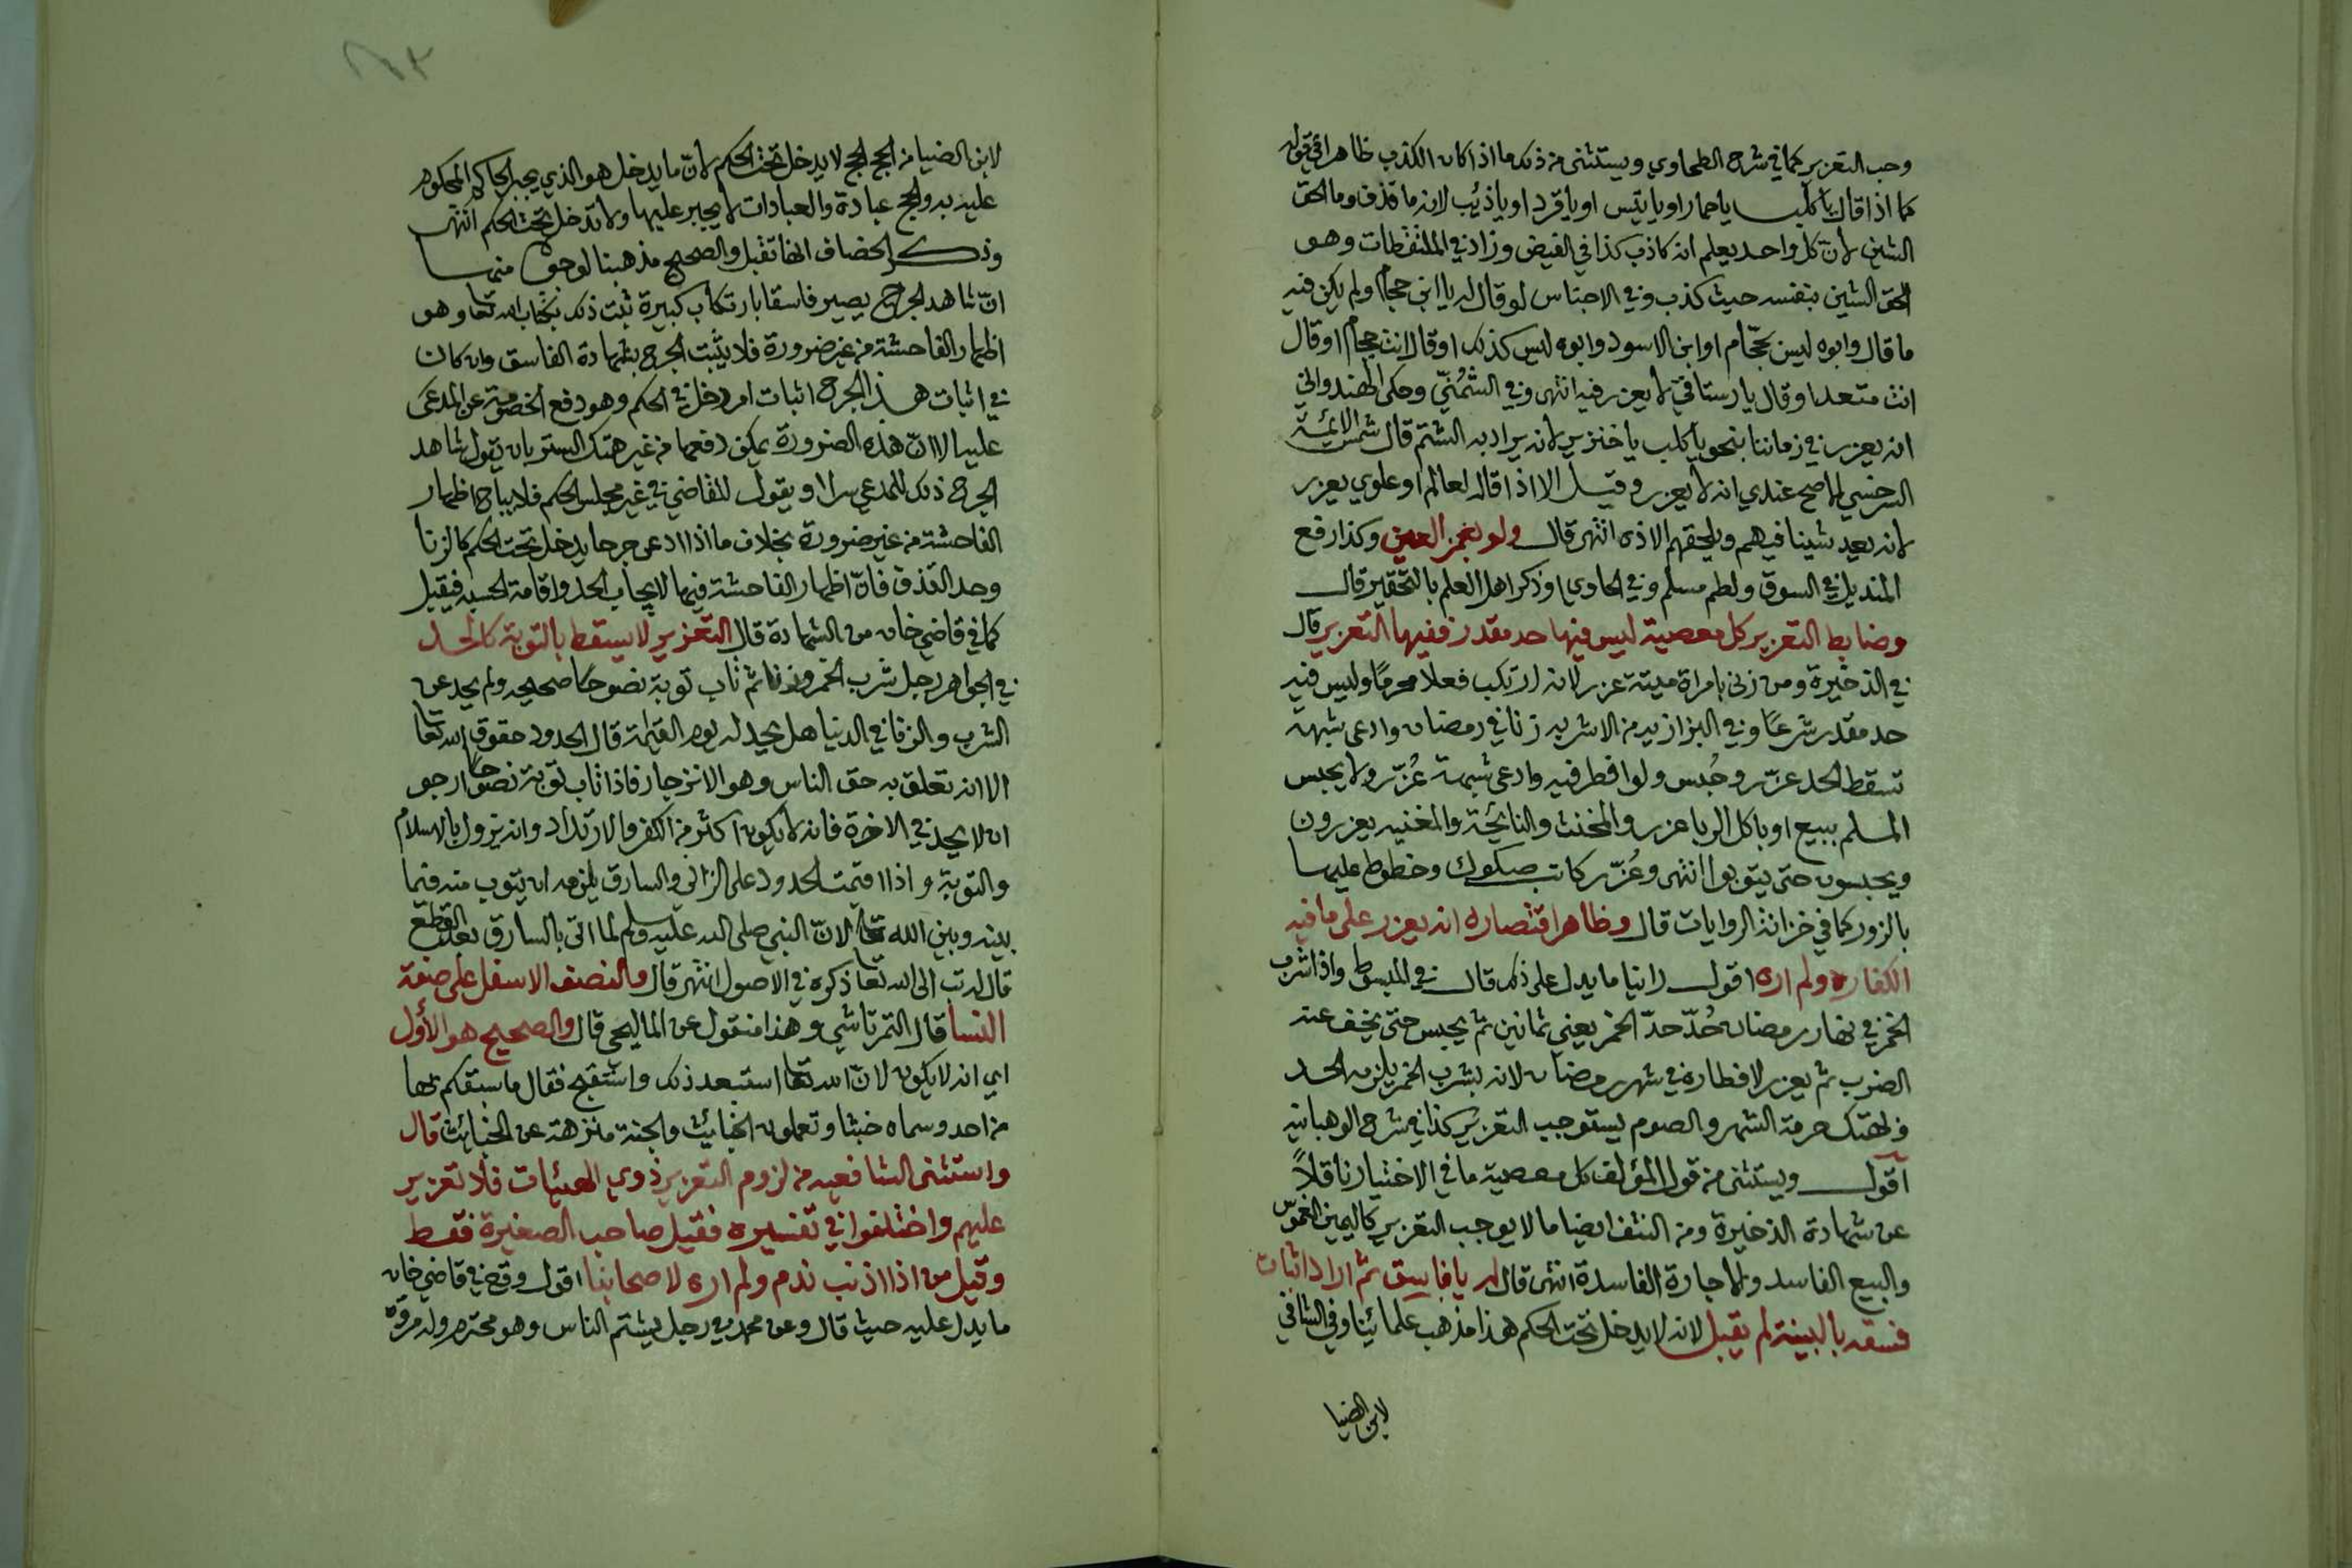 وجب التعزير كما في شرح الطحاوي ويستثنى من ذلك ما اذا كان الكذب ظاهرا في قوله
كما اذا قال يا كلب يا حمار او يا تيس او يا قرد او يا ذئب لانه ما قذف وما الحق
الشين لأن كل واحد يعلم انه كاذب كذا في الفيض وزاد في الملتقطات وهو
الحق الشين بنفسه حيث كذب وفي الاجناس لو قال له يا ابن حجام ولم يكن فيه
ما قال وابوه ليس بحجّام او ابن الاسود وابوه ليس كذلك او قال انت حجام او قال
انت متعد او قال يا رستاقي لا يعزر فيه انتهى وفي الشُمُنّي وحكى الهندواني
انه يعزر في زماننا بنحو يا كلب يا خنزير لانه يراد به الشتم قال شمس الائمة
السرخسي الاصح عندي انه لا يعزر وقيل الا اذا قاله لعالم او علوي يعزر
لانه يعد شينا فيهم ويلحقهم الاذى انتهى قال ولو بغمز العين وكذا رفع
المنديل في السوق ولطم مسلم وفي الحاوي او ذكر اهل العلم بالتحقير قال
وضابط التعزير كل معصية ليس فيها حد مقدر ففيها التعزير قال
في الذخيرة ومن زنى بامراة ميتة عزر لانه ارتكب فعلا محرمًا وليس فيه
حد مقدر شرعًا وفي البزازيه من الاشربه زنا في رمضان وادعى شبهة
تسقط الحد عزّر وحُبس ولو افطر فيه وادعى شبهة عُزّر ولا يحبس
المسلم ببيع او باكل الربا عزر والمخنث والنائحة والمغنيه يعزرون
ويحبسون حتى يتوبوا انتهى وعُزّر كاتب صكوك وخطوط عليها
بالزور كما في خزانة الروايات قال وظاهر اقتصاره انه يعزر على ما فيه
الكفاره ولم اره اقول راينا ما يدل على ذلك قال في المبسوط واذا شرب
الخمر في نهار رمضان حُدّ حدّ الخمر يعني ثمانين ثم يحبس حتى يخف عنه
الضرب ثم يعزر لافطاره في شهر رمضان لانه بشرب الخمر يلزمه الحد
ولهتك حرمة الشهر والصوم يستوجب التعزير كذا في شرح الوهبانيه
اقول ويستثنى من قول المؤلف كل معصية ما في الاختيار ناقلاً
عن شهادة الذخيرة ومن النتف ايضا ما لا يوجب التعزير كاليمين الغموس
والبيع الفاسد والاجارة الفاسدة انتهى قال له يا فاسق ثم اراد اثبات
فسقه بالبينة لم تقبل لانه لا يدخل تحت الحكم هذا مذهب علمائنا وفي الشافي
لابن الضيا
لابن الضيا من الحج الحج لا يدخل تحت الحكم لأنّ ما يدخل هو الذي يجبر الحاكم المحكوم
عليه به والحج عبادة والعبادات لا يجبر عليها ولا تدخل تحت الحكم انتهى
وذكر الخصاف انها تقبل والصحيح مذهبنا لوجوه منها
انّ شاهد الجرح يصير فاسقا بارتكاب كبيرة ثبت ذلك بكتاب الله تعا وهو
اظهار الفاحشة من غير ضرورة فلا يثبت الجرح بشهادة الفاسق وان كان
في اثبات هذا الجرح اثبات امر دخل في الحكم وهو دفع الخصومة عن المدعى
عليه الا انّ هذه الضرورة يمكن دفعها من غير هتك الستر بان يقول شاهد
الجرح ذلك للمدعي سرا او يقول للقاضي في غير مجلس الحكم فلا يباح اظهار
الفاحشة من غير ضرورة بخلاف ما اذا ادعى جرحا يدخل تحت الحكم كالزنا
وحد القذف فانّ اظهار الفاحشة فيها لايجاب الحد واقامة الحسبه فيقبل
كما في قاضي خان من الشهادة قال التعزير لا يسقط بالتوبة كالحد
في الجواهر رجل شرب الخمر وزنا ثم تاب توبة نصوحًا صحيحه ولم يحد عن
الشرب والزنا في الدنيا هل يحد له يوم القيامة قال الحدود حقوق الله تعا
الا انه تعلق به حق الناس وهو الانزجار فاذا تاب توبة نصوحا ارجو
ان لا يحد في الاخرة فانه لا يكون اكثر من الكفر والارتداد وانه يزول بالاسلام
والتوبة واذا اقيمت الحدود على الزاني والسارق يلزمه ان يتوب منه فيما
بينه وبين الله تعا لانّ النبي صلى الله عليه وسلم لما اتى بالسارق بعد القطع
قال له تب الى الله تعا ذكره في الاصول انتهى قال والنصف الاسفل على صفة
النسا قال التمرتاشي وهذا منقول عن المايحي قال والصحيح هو الأول
اي انه لا يكون لانّ الله تعا استبعد ذلك واستقبح فقال ما سبقكم بها
من احد وسماه خبثا وتعملون الخبائث والجنة منزهة عن الخبائث قال
واستثنى الشافعيه من لزوم التعزير ذوي الهيئات فلا تعزير
عليهم واختلفوا في تفسيره فقيل صاحب الصغيرة فقط
وقيل من اذا اذنب ندم ولم اره لاصحابنا اقول وقع في قاضي خان
ما يدل عليه حيث قال وعن محمد في رجل يشتم الناس وهو محترم وله مروة